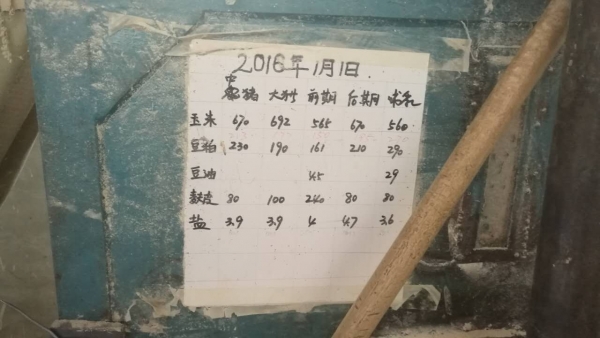 2016年1月1日
中猪 大猪 前期 后期 哺乳
玉米 670 692 565 670 560
豆粕 230 190 161 210 290
豆油 45 29
麸皮 80 100 240 80 80
盐 3.9 3.9 4 4.7 3.6